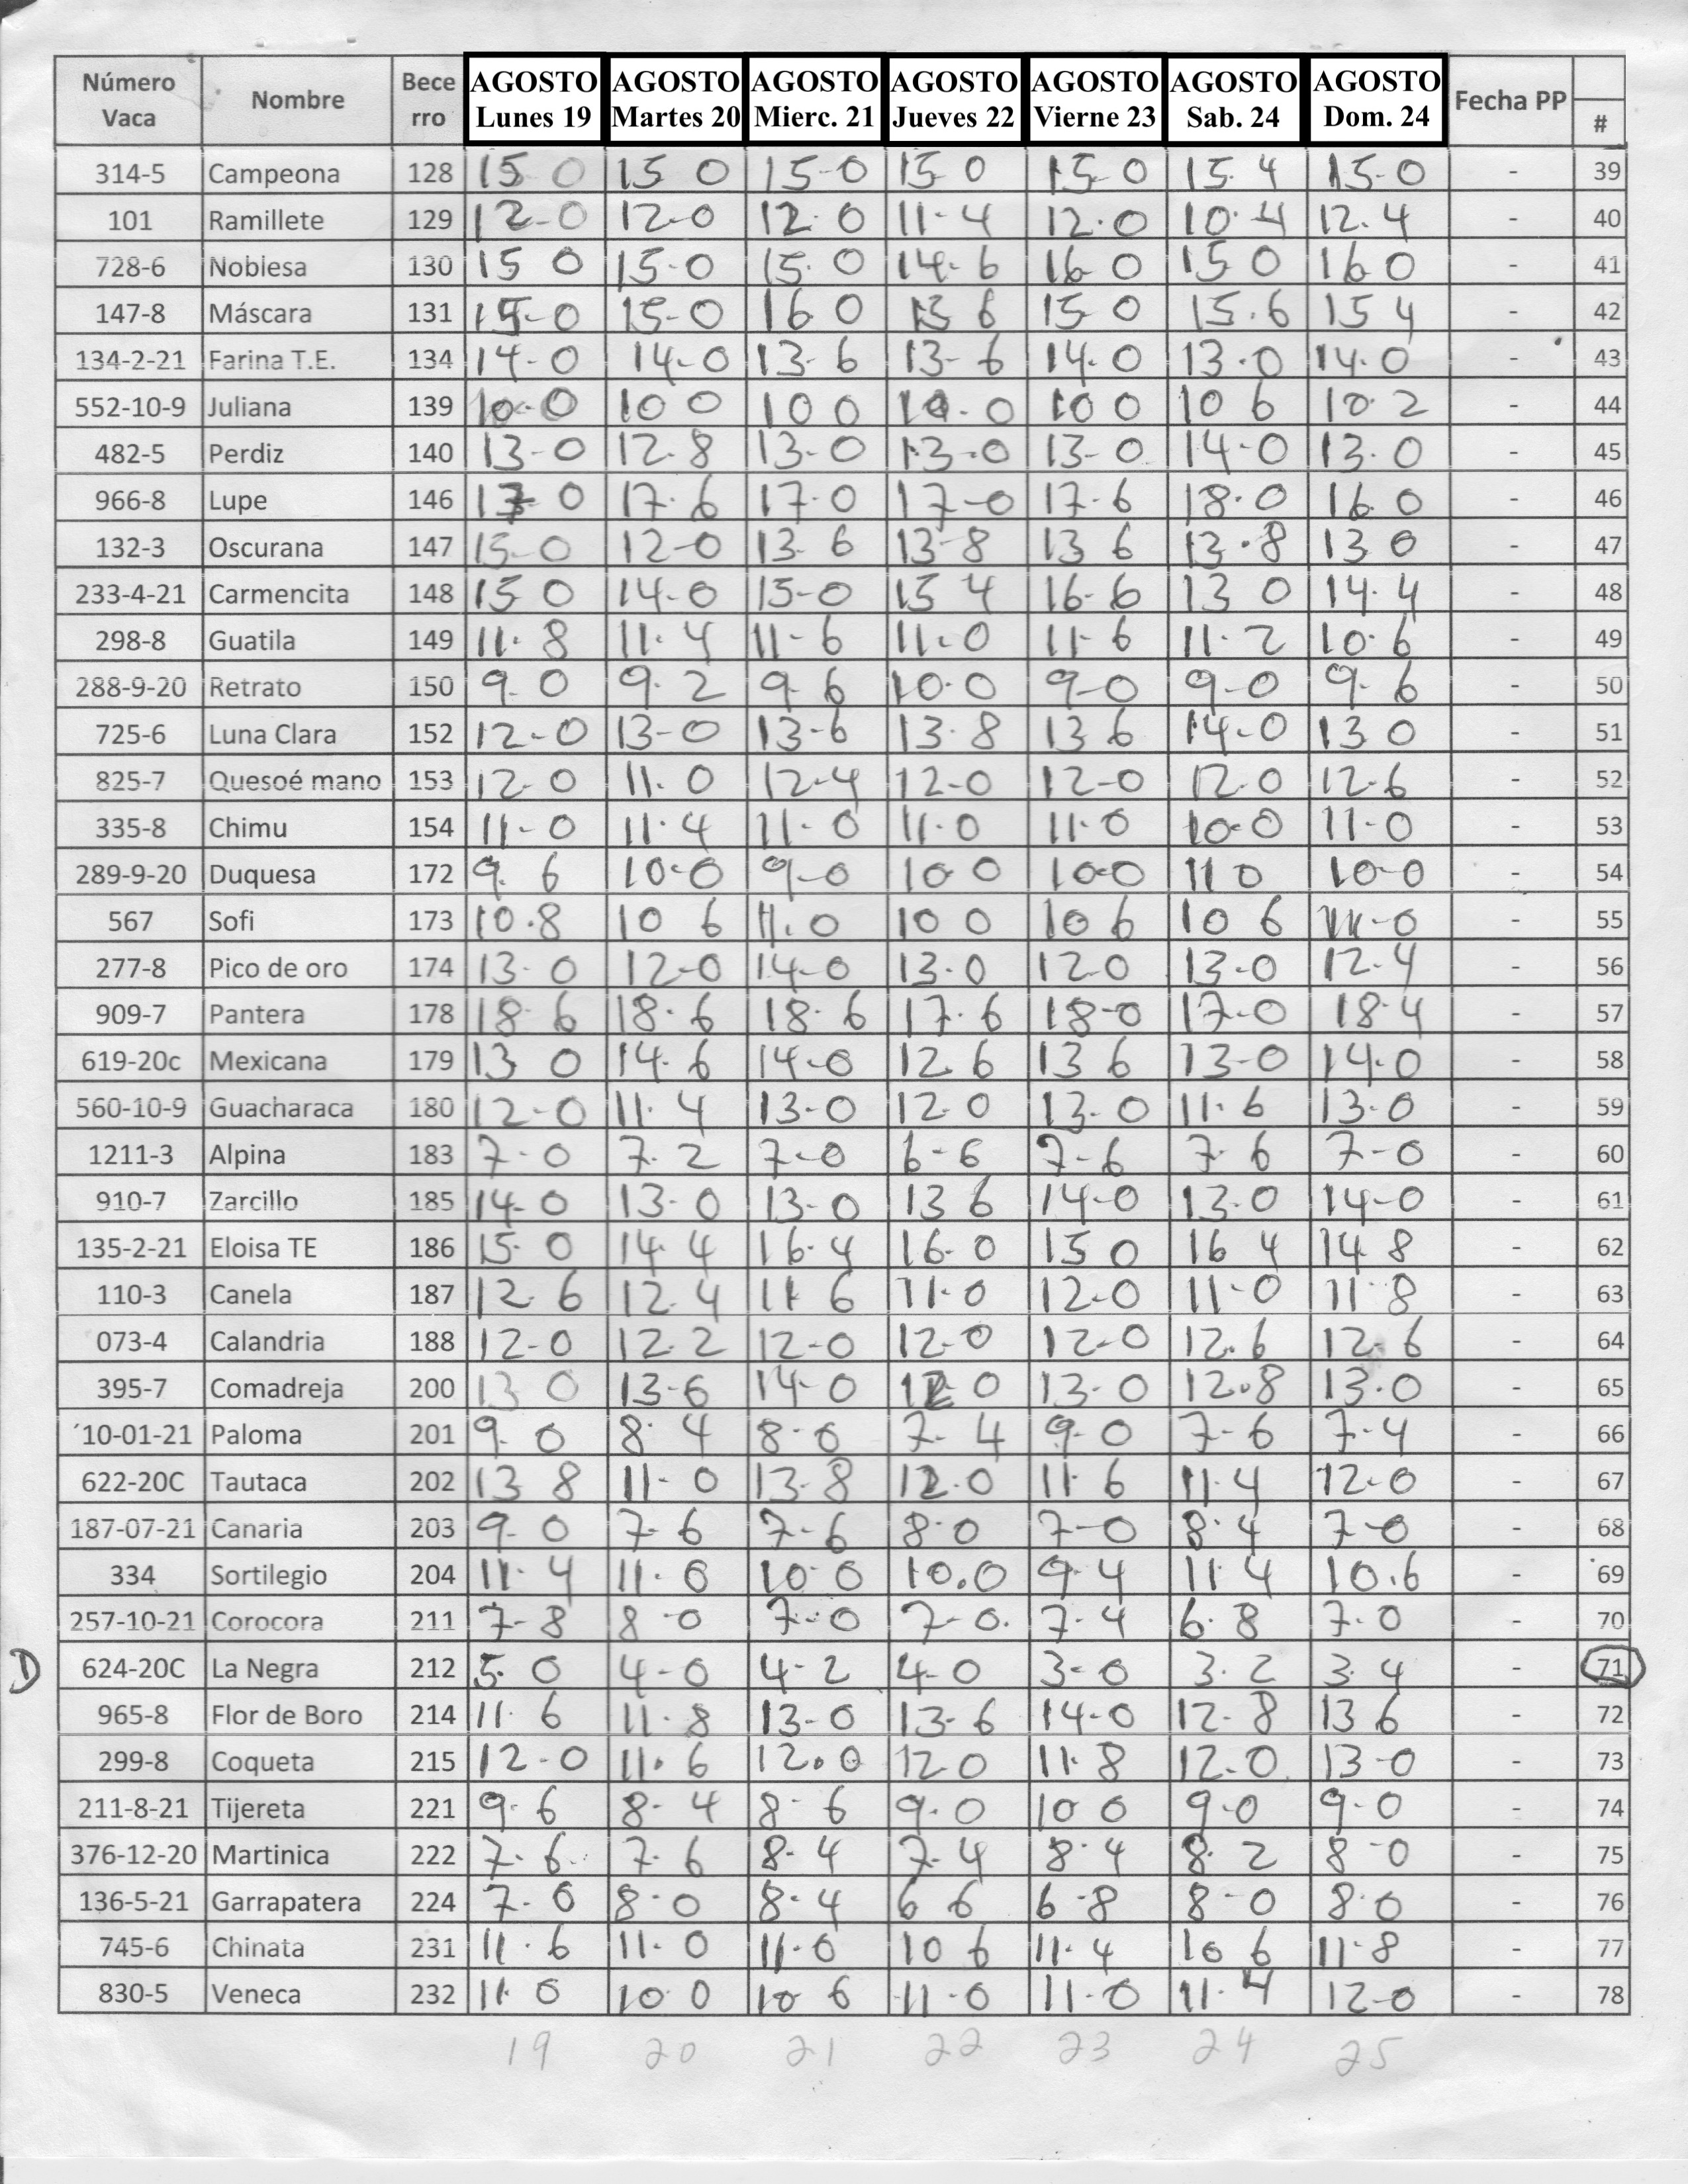 Número Vaca Nombre Bece rro AGOSTO Lunes 19 AGOSTO Martes 20 AGOSTO Mierc. 21 AGOSTO Jueves 22 AGOSTO Vierne 23 AGOSTO Sab. 24 AGOSTO Dom. 24 Fecha PP #
314-5 Campeona 128 15 0 15 0 15-0 15 0 15-0 15.4 15-0 - 39
101 Ramillete 129 12-0 12-0 12.0 11-4 12.0 10.4 12.4 - 40
728-6 Nobiesa 130 15 0 15-0 15.0 14-6 16 0 15 0 16 0 - 41
147-8 Máscara 131 15-0 15-0 16 0 13 6 15 0 15.6 15 4 - 42
134-2-21 Farina T.E. 134 14-0 14-0 13-6 13-6 14.0 13.0 14.0 - 43
552-10-9 Juliana 139 10-0 10 0 10 0 10.0 10 0 10 6 10.2 - 44
482-5 Perdiz 140 13-0 12.8 13-0 13.0 13-0 14-0 13.0 - 45
966-8 Lupe 146 17 0 17.6 17.0 17-0 17-6 18.0 16 0 - 46
132-3 Oscurana 147 15-0 12-0 13-6 13-8 13 6 13.8 13 0 - 47
233-4-21 Carmencita 148 15 0 14-0 15-0 15 4 16-6 13 0 14.4 - 48
298-8 Guatila 149 11.8 11.4 11-6 11.0 11-6 11.2 10.6 - 49
288-9-20 Retrato 150 9.0 9.2 9-6 10.0 9-0 9-0 9-6 - 50
725-6 Luna Clara 152 12-0 13-0 13-6 13.8 13 6 14-0 13 0 - 51
825-7 Quesoé mano 153 12-0 11.0 12-4 12-0 12-0 12.0 12-6 - 52
335-8 Chimu 154 11-0 11.4 11-0 11.0 11.0 10-0 11-0 - 53
289-9-20 Duquesa 172 9.6 10-0 9-0 10 0 10-0 11 0 10-0 - 54
567 Sofi 173 10.8 10 6 11.0 10 0 10 6 10 6 11-0 - 55
277-8 Pico de oro 174 13-0 12-0 14-0 13.0 12.0 13-0 12.4 - 56
909-7 Pantera 178 18 6 18.6 18.6 17.6 18-0 17-0 18.4 - 57
619-20c Mexicana 179 13 0 14.6 14-0 12.6 13 6 13-0 14.0 - 58
560-10-9 Guacharaca 180 12-0 11.4 13-0 12 0 13-0 11.6 13-0 - 59
1211-3 Alpina 183 7-0 7.2 7-0 6-6 7-6 7.6 7-0 - 60
910-7 Zarcillo 185 14-0 13-0 13-0 13 6 14-0 13.0 14-0 - 61
135-2-21 Eloisa TE 186 15.0 14.4 16.4 16-0 15 0 16 4 14 8 - 62
110-3 Canela 187 12.6 12.4 11 6 11.0 12-0 11-0 11.8 - 63
073-4 Calandria 188 12-0 12.2 12-0 12-0 12-0 12.6 12.6 - 64
395-7 Comadreja 200 13 0 13-6 14-0 12 0 13-0 12.8 13.0 - 65
´10-01-21 Paloma 201 9.0 8.4 8.0 7-4 9.0 7-6 7-4 - 66
622-20C Tautaca 202 13 8 11-0 13-8 12.0 11.6 11.4 12-0 - 67
187-07-21 Canaria 203 9 0 7-6 7-6 8.0 7-0 8.4 7-0 - 68
334 Sortilegio 204 11.4 11.0 10.0 10.0 9.4 11.4 10.6 - 69
257-10-21 Corocora 211 7-8 8-0 7-0 7-0. 7-4 6.8 7.0 - 70
D 624-20C La Negra 212 5.0 4-0 4-2 4-0 3-0 3.2 3.4 - 71
965-8 Flor de Boro 214 11.6 11.8 13-0 13-6 14-0 12-8 13 6 - 72
299-8 Coqueta 215 12-0 11.6 12.0 12 0 11.8 12.0 13-0 - 73
211-8-21 Tijereta 221 9-6 8-4 8-6 9.0 10 0 9.0 9-0 - 74
376-12-20 Martinica 222 7-6 7.6 8-4 7-4 8.4 8.2 8-0 - 75
136-5-21 Garrapatera 224 7-0 8-0 8-4 6 6 6-8 8-0 8.0 - 76
745-6 Chinata 231 11.6 11-0 11-0 10 6 11.4 10 6 11-8 - 77
830-5 Veneca 232 11.0 10 0 10 6 11-0 11-0 11.4 12-0 - 78
19 20 21 22 23 24 25